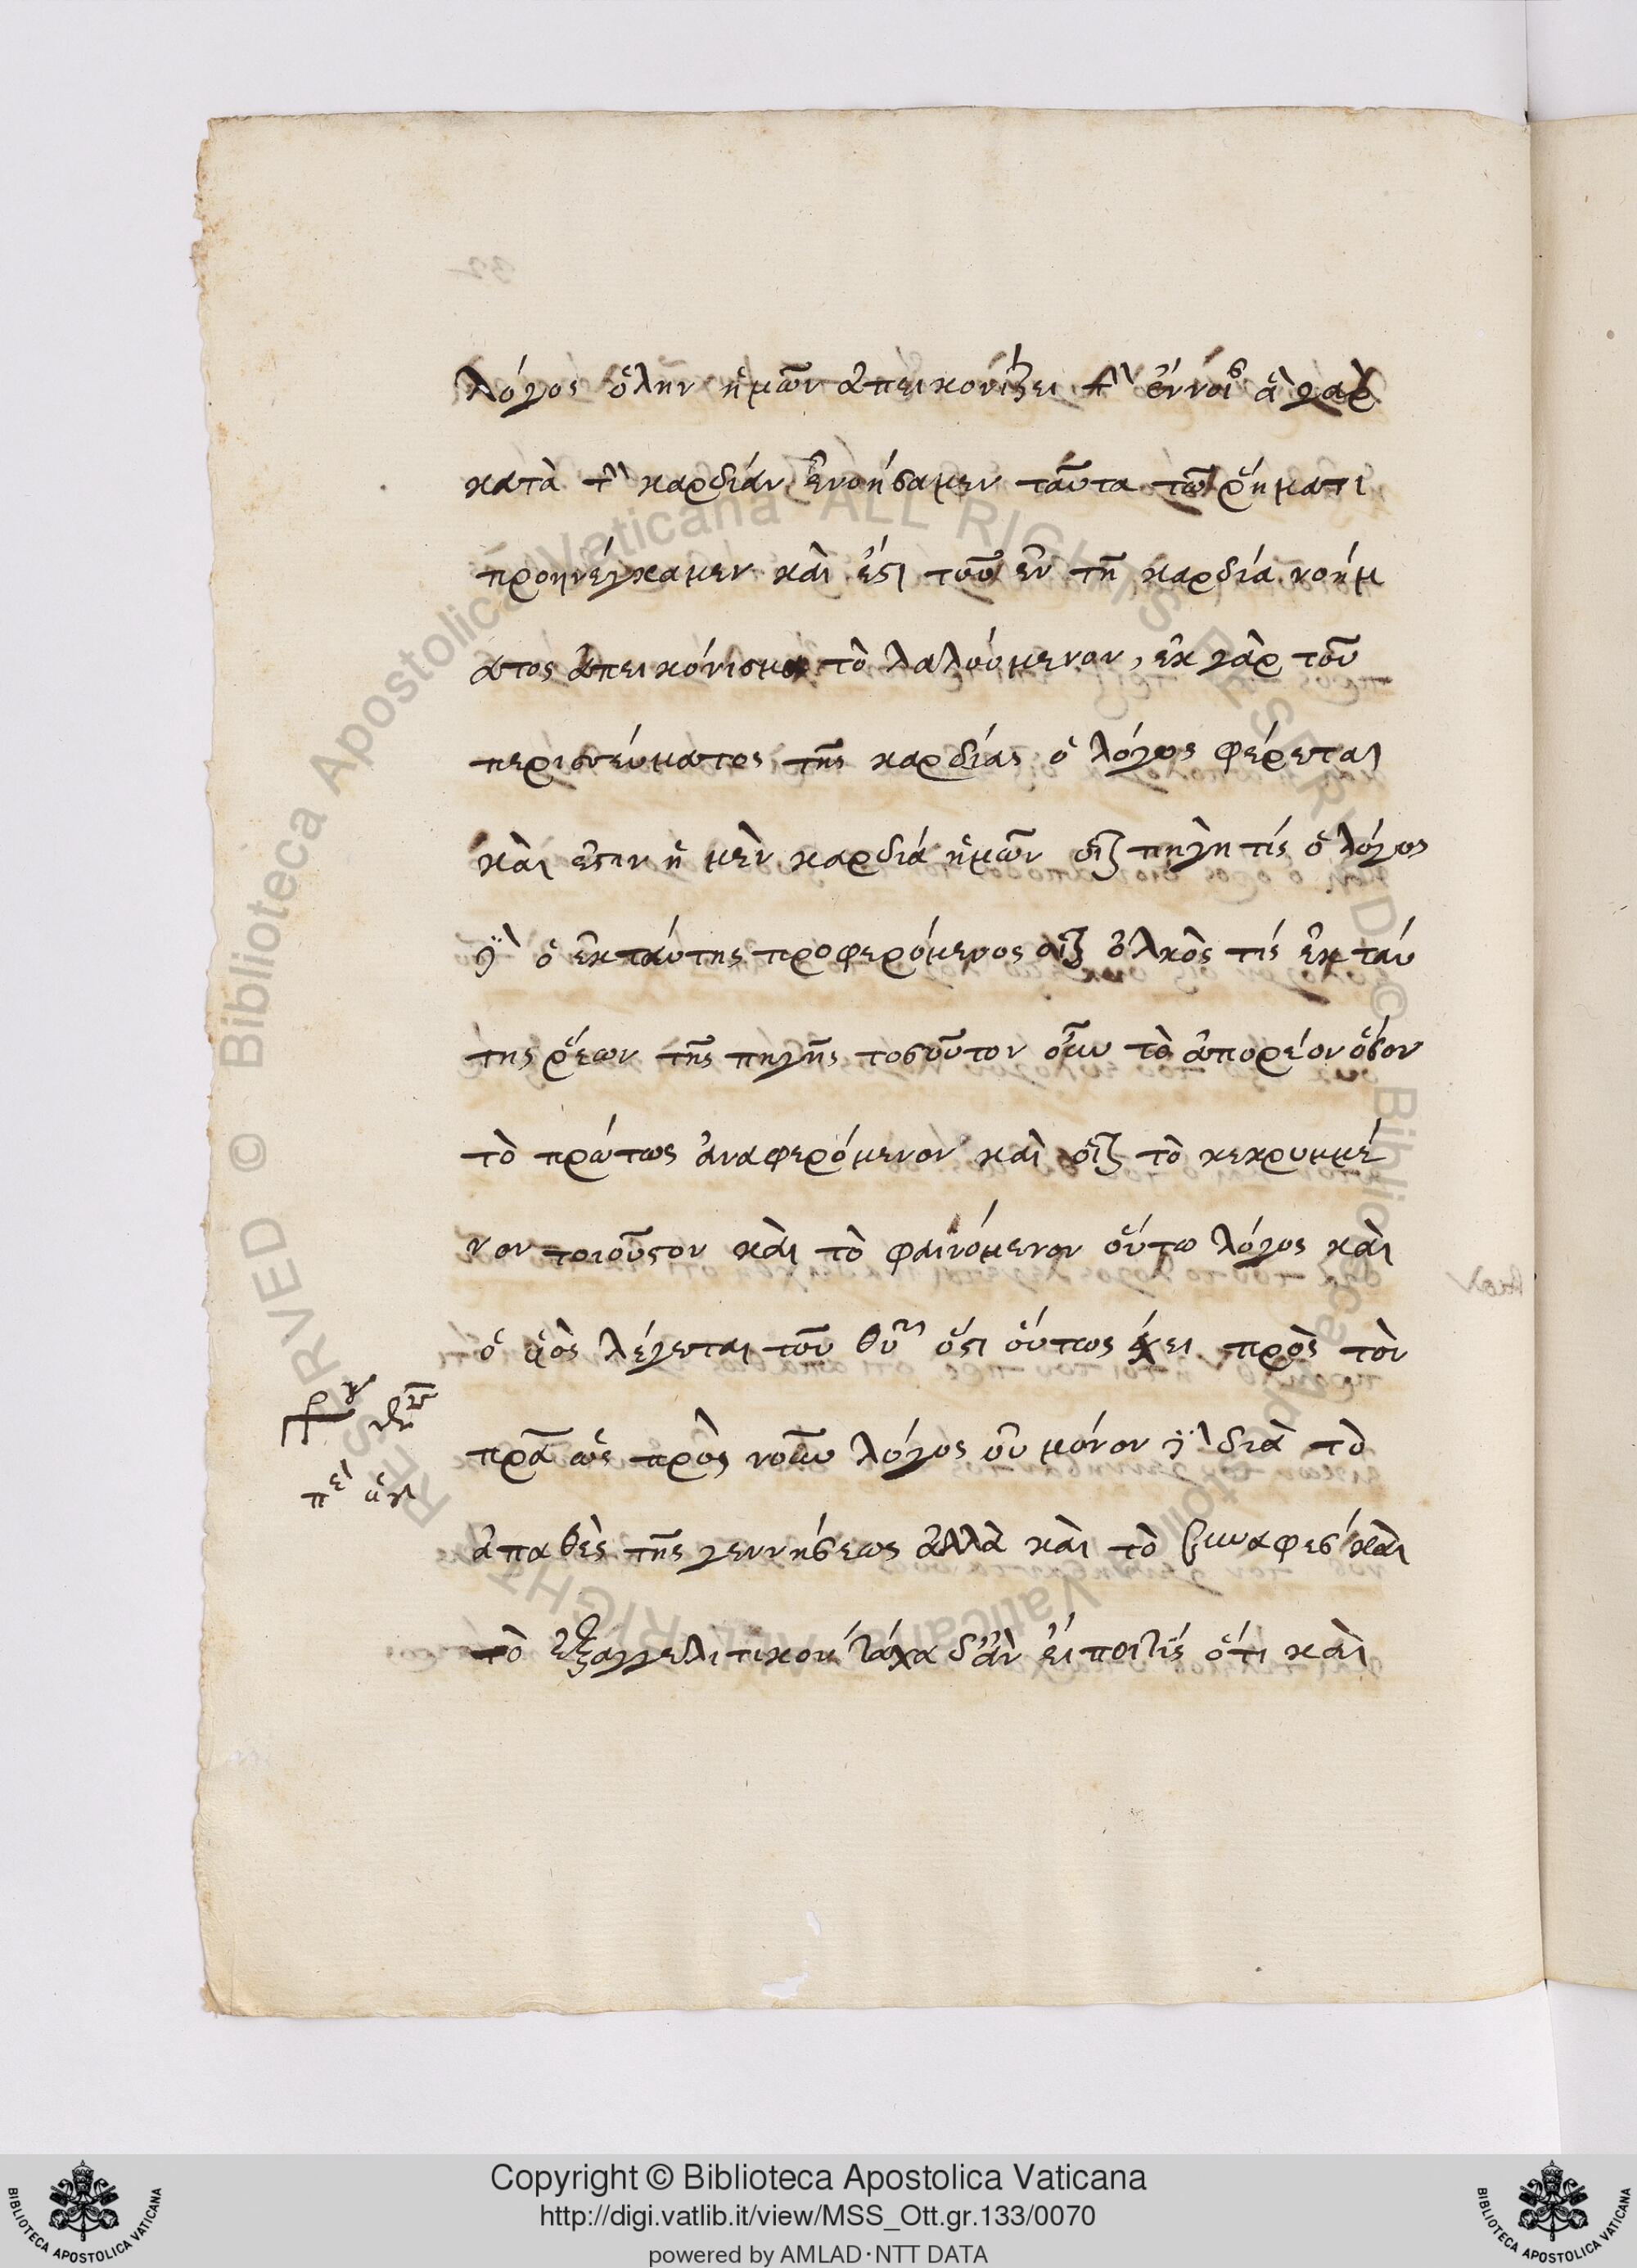 λόγος ὅλην ἡμῶν ἀπεικονίζει τὴν ἔννοιαν ἃ γὰρ
κατὰ τὴν καρδίαν ἐνοήσαμεν ταῦτα τῶ ῥήματι
προηνέγκαμεν καὶ ἔστι τοῦ ἐν τῆ καρδία νοήμ
ατος ἀπεικόνισμα τὸ λαλούμενον, ἐκ γὰρ τοῦ
περισεύματος τῆς καρδίας ὁ λόγος φέρεται
καὶ ἔστιν ἡ μὲν καρδιά ἡμῶν οἷον πηγὴ τίς ὁ λόγος
δὲ ὁ ἐκ ταύτης προφερόμενος οἷον ὁλκὸς τίς ἐκ ταύ
της ῥέων τῆς πηγῆς τοσοῦτον οὖν τὸ ἀπορέον ὅσον
τὸ πρώτως ἀναφερόμενον καὶ οἷον τὸ κεκρυμμέ
νον τοιοῦτον καὶ τὸ φαινόμενον οὕτω λόγος καὶ
ὁ υἱὸς λέγεται τοῦ θυ ὅτι οὕτως ἔχει πρὸς τὸν
πρα ὡς πρὸς νοῦν λόγος οὐ μόνον δὲ διὰ τὸ
ἀπαθὲς τῆς γεννήσεως ἀλλὰ καὶ τὸ συναφὲς καὶ
τὸ ἐξαγγελτικὸν τάχα δ' ἂν εἴποι τίς ὅτι καὶ
Copyright © Biblioteca Apostolica Vaticana
http://digi.vatlib.it/view/MSS_Ott.gr.133/0070
powered by AMLAD·NTT DATA